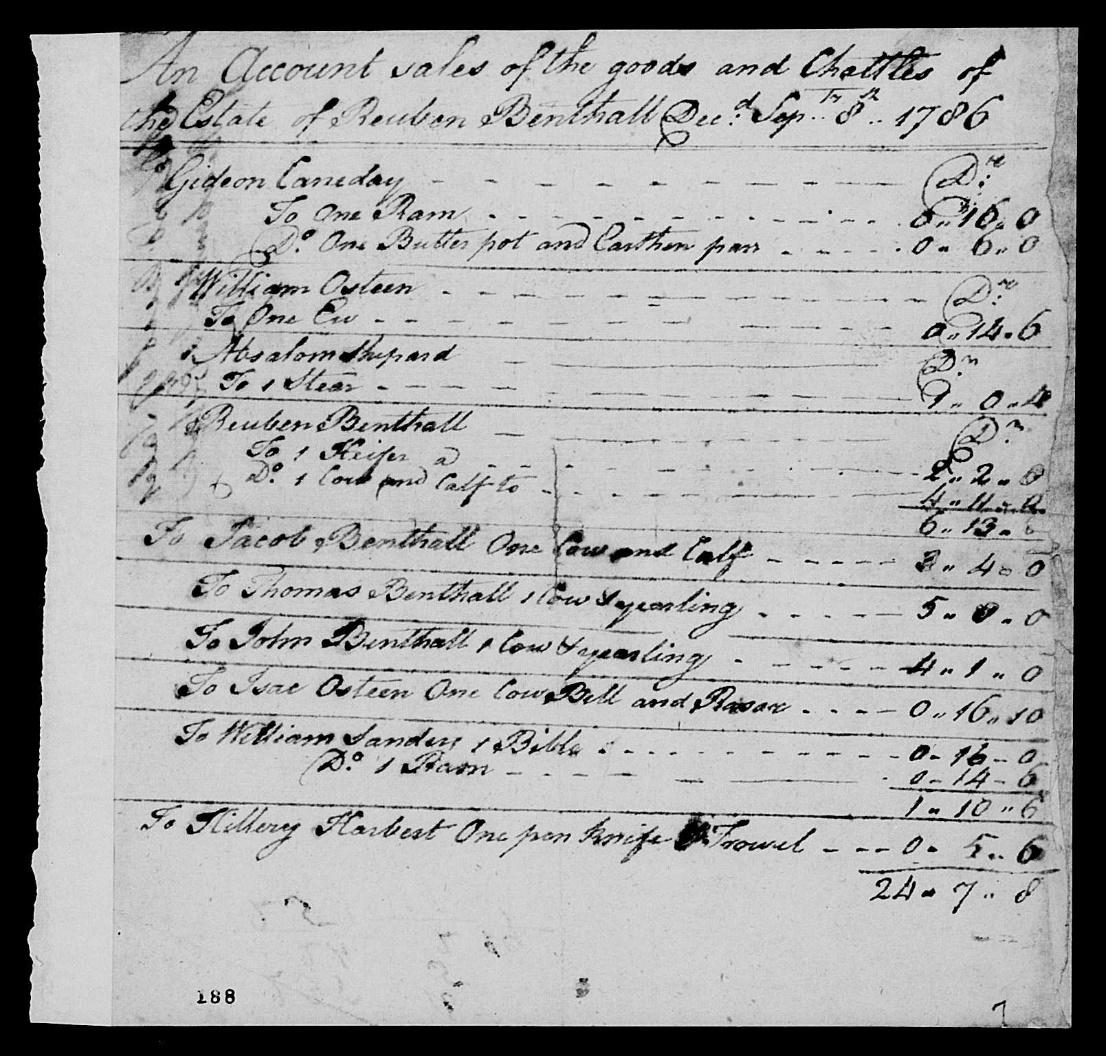 An Account sales of the goods and Chattles of
the Estate of Reuben Benthall Decd. Sepr. 8th .. 1786
Gideon Caneday - - - - - - - - Dr.
To One Ram - - - - - - - - 0 " 16 " 0
Do. One Butter pot and Earthen pan - - - - 0 " 6 " 0
William Osteen - - - - - - - - Dr.
To One Ew - - - - - - - - 0 " 14 " 6
Absalom Shepard Dr.
To 1 Stear - - - - 1 " 0 " 4
Reuben Benthall Dr.
To 1 Heifer a - - - - - 2 " 2 " 0
Do. 1 Cow and Calf to - - - - - 4 " 11
6 " 13 "
To Jacob Benthall One Cow and Calf - - - - - 3 " 4 " 0
To Thomas Benthall 1 Cow & yearling - - - - - 5 " 0 " 0
To John Benthall 1 Cow & yearling - - - - - 4 " 1 " 0
To Isac Osteen One Cow Bell and Rasor - - - - 0 " 16 " 10
To William Sanders 1 Bible - - - - - - 0 - 16 - 0
Do. 1 Ram - - - - - - 0 - 14 - 6
1 " 10 " 6
To Hillery Harbert One pen knife & Trowel - - - 0 " 5 " 6
24 " 7 " 8
188